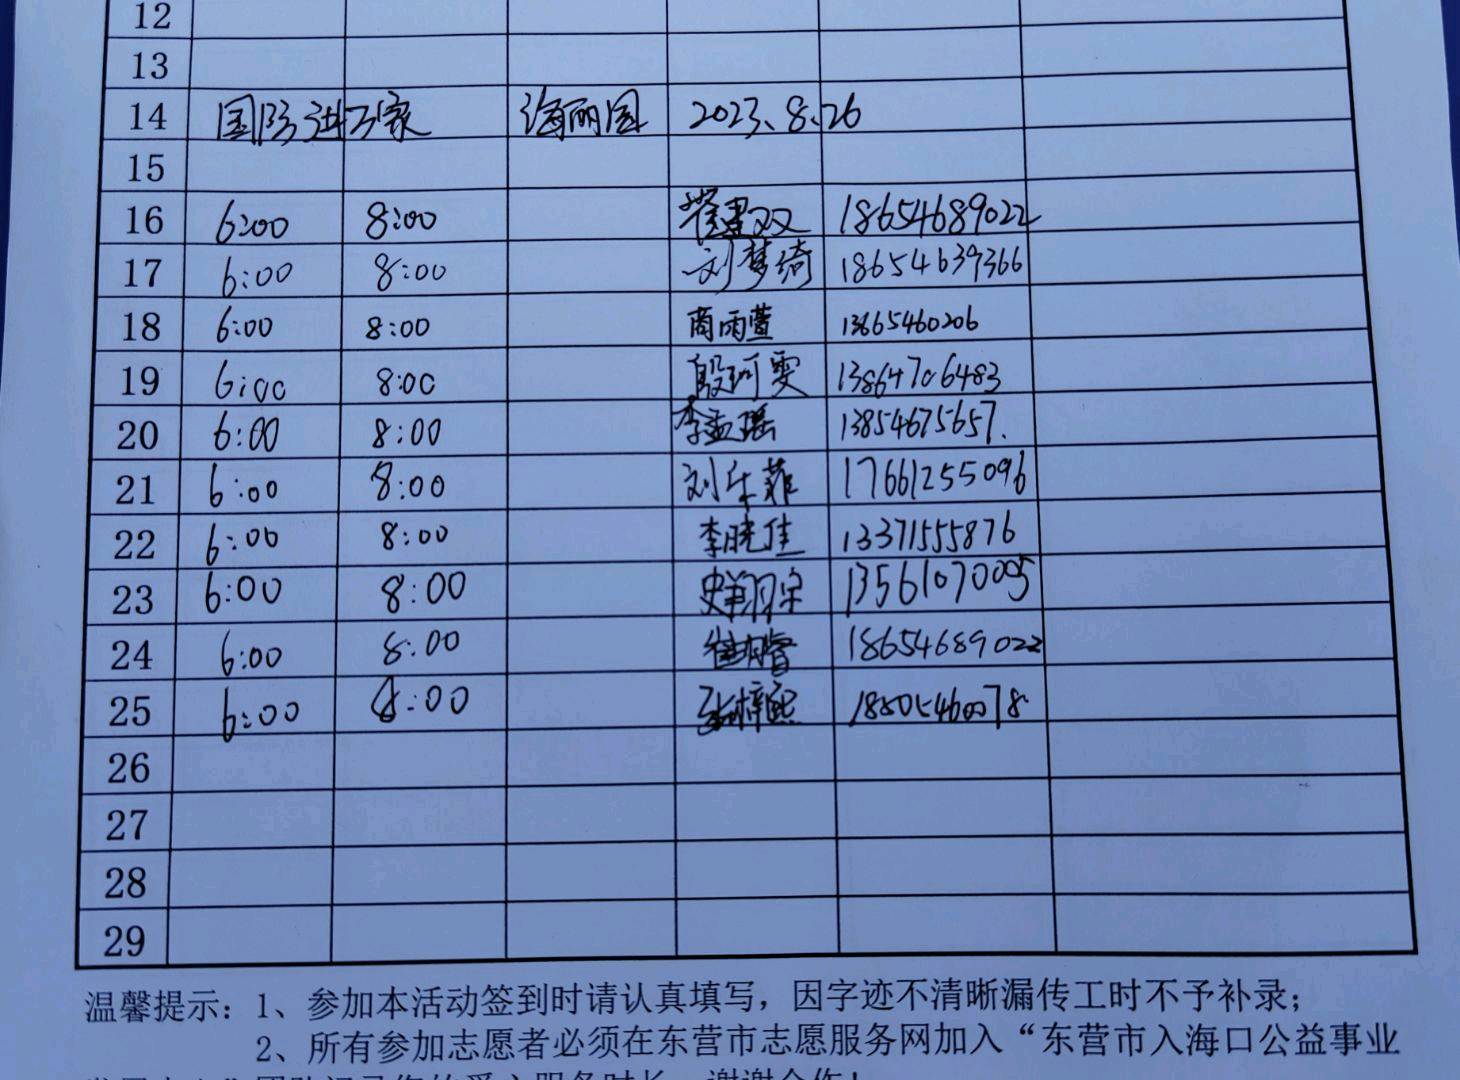 12
13
14 国防进万家 海丽园 2023.8.26
15
16 6:00 8:00 18654689022
17 6:00 8:00 刘梦绮 18654639366
18 6:00 8:00 商雨萱 13665460206
19 6:00 8:00 殷珂雯 13864706483
20 6:00 8:00 李孟瑶 13854675657.
21 6:00 8:00 刘乐菲 17661255096
22 6:00 8:00 李晓佳 13371555876
23 6:00 8:00 13561070005
24 6:00 8:00 18654689022
25 6:00 8:00 张梓熙 18505460078
26
27
28
29
温馨提示：1、参加本活动签到时请认真填写，因字迹不清晰漏传工时不予补录；
2、所有参加志愿者必须在东营市志愿服务网加入“东营市入海口公益事业